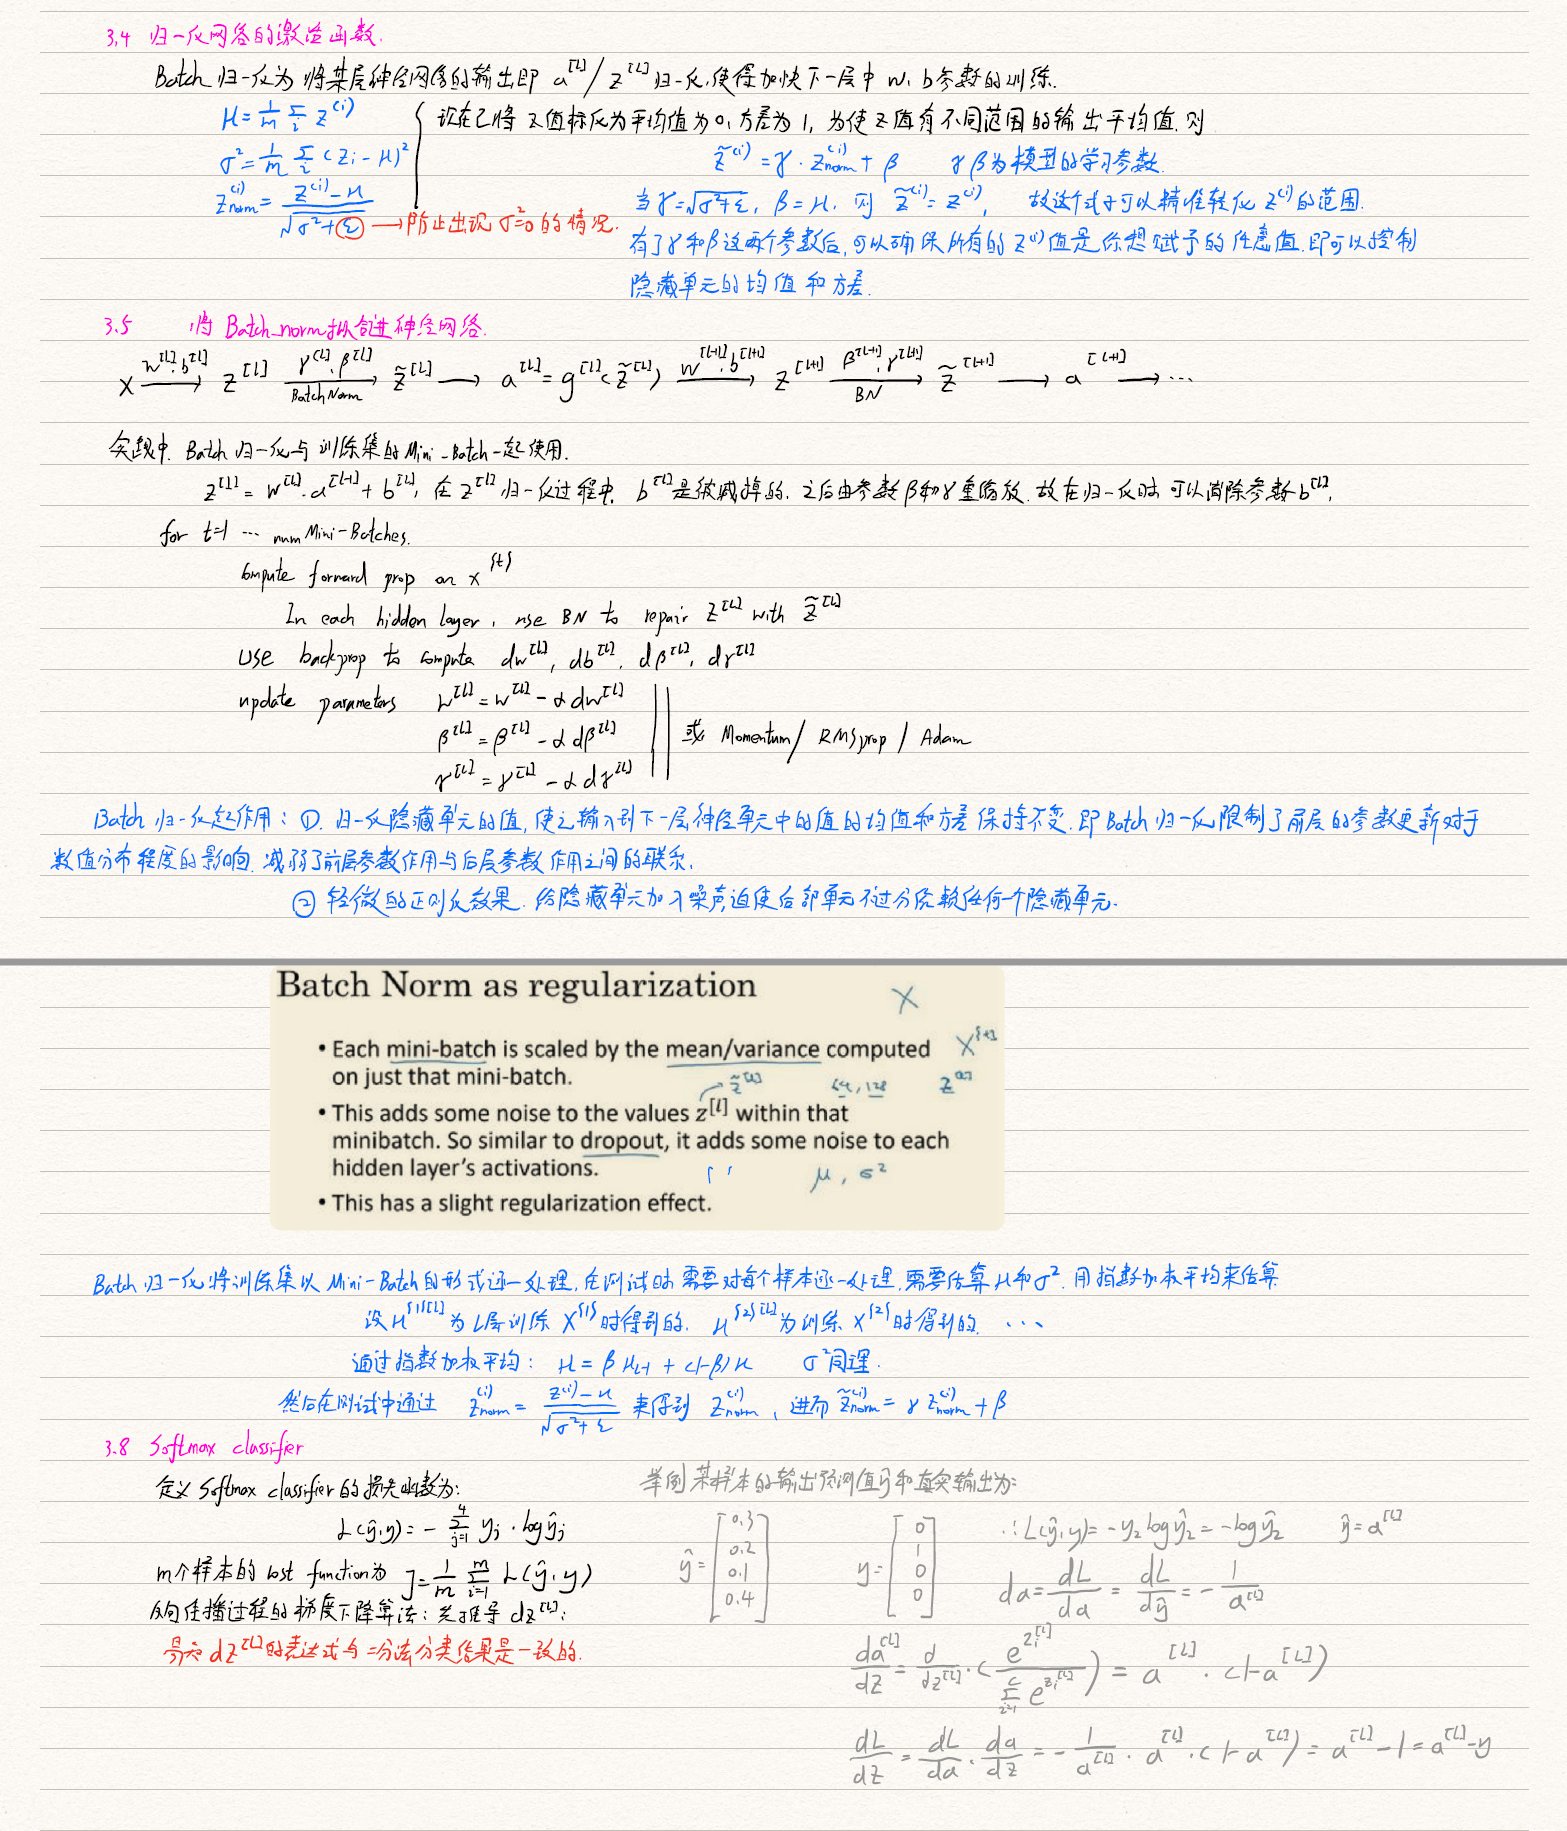 3.4 归一化网络的激活函数.
Batch 归一化为 将某层神经网络的输出即 a^[L] / z^[L] 归一化,使得加快下一层中 w, b参数的训练.
μ = 1/m Σ_i z^(i)
σ² = 1/m Σ_i (z_i - μ)²
z_norm^(i) = (z^(i) - μ) / √(σ²+ε) → 防止出现 σ²=0 的情况.
现在已将 z值标化为平均值为0, 方差为1, 为使z值有不同范围的输出平均值. 则
z̃^(i) = γ · z_norm^(i) + β γ β为模型的学习参数.
当 γ = √(σ²+ε), β = μ, 则 z̃^(i) = z^(i), 故这个式子可以精准转化 z^(i) 的范围.
有了γ和β这两个参数后, 可以确保所有的 z^(i) 值是你想赋予的任意值. 即可以控制
隐藏单元的均值和方差.
3.5 将 Batch_norm拟合进神经网络.
x —w^[L], b^[L]→ z^[L] —γ^[L], β^[L] / Batch Norm→ z̃^[L] → a^[L] = g^[L](z̃^[L]) —w^[L+1], b^[L+1]→ z^[L+1] —β^[L+1], γ^[L+1] / BN→ z̃^[L+1] → a^[L+1] → ...
实践中. Batch 归一化与训练集的 Mini-Batch一起使用.
z^[L] = w^[L]·a^[L-1] + b^[L], 在 z^[L] 归一化过程中, b^[L] 是被减掉的. 之后由参数β和γ重缩放. 故在归一化时 可以消除参数b^[L].
for t=1 ... num Mini-Batches.
Compute forward prop on x^{t}
In each hidden layer, use BN to repair z^[L] with z̃^[L]
use backprop to compute dw^[L], db^[L], dβ^[L], dγ^[L]
update parameters w^[L] = w^[L] - α dw^[L]
β^[L] = β^[L] - α dβ^[L] 或 Momentum / RMSprop / Adam
γ^[L] = γ^[L] - α dγ^[L]
Batch 归一化起作用: ①. 归一化隐藏单元的值, 使之输入到下一层神经单元中的值的均值和方差保持不变. 即 Batch 归一化限制了前层的参数更新对于
数值分布程度的影响. 减弱了前层参数作用与后层参数作用之间的联系.
② 轻微的正则化效果. 给隐藏单元加入噪声,迫使后部单元不过分依赖任何一个隐藏单元.
Batch Norm as regularization X
• Each mini-batch is scaled by the mean/variance computed X^{t}
on just that mini-batch. z̃^[L] 64, 128 z^[L]
• This adds some noise to the values z^[l] within that
minibatch. So similar to dropout, it adds some noise to each
hidden layer's activations. μ, σ²
• This has a slight regularization effect.
Batch 归一化将训练集以 Mini-Batch 的形式逐一处理, 在测试时 需要对每个样本逐一处理. 需要估算 μ和σ². 用指数加权平均来估算
设 μ^{1}[L] 为 L层训练 X^{1} 时得到的. μ^{2}[L] 为训练 X^{2} 时得到的. ...
通过指数加权平均: μ = β μ_{t-1} + (1-β) μ σ²同理.
然后在测试中通过 z_norm^(i) = (z^(i) - μ) / √(σ²+ε) 来得到 z_norm^(i), 进而 z̃_norm^(i) = γ z_norm^(i) + β
3.8 Softmax classifier
定义 Softmax classifier 的损失函数为:
L(ŷ, y) = - Σ_{j=1}^{4} y_j · log ŷ_j
m个样本的 cost function为 J = 1/m Σ_{i=1}^{m} L(ŷ, y)
反向传播过程的梯度下降算法: 先推导 dz^[L]:
易知 dz^[L] 的表达式与二分法分类结果是一致的.
举例 某样本的输出预测值ŷ和真实输出为:
ŷ = [0.3 0.2 0.1 0.4] y = [0 1 0 0] ∴ L(ŷ, y) = -y₂ log ŷ₂ = -log ŷ₂ ŷ = a^[L]
da = dL/da = dL/dŷ = - 1/a^[L]
da^[L]/dz = d/dz^[L] · (e^{z_i^[L]} / Σ_{i=1}^{C} e^{z_i^[L]}) = a^[L] · (1-a^[L])
dL/dz = dL/da · da/dz = - 1/a^[L] · a^[L] · (1-a^[L]) = a^[L] - 1 = a^[L] - y